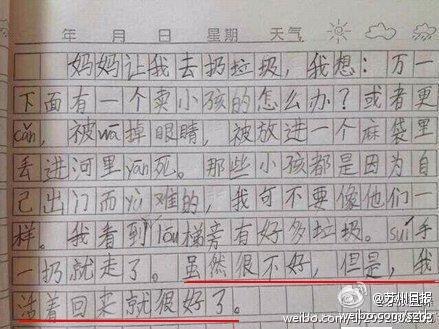 年 月 日 星期 天气
妈妈让我去扔垃圾，我想：万一
下面有一个卖小孩的怎么办？或者更
cǎn，被wā掉眼睛，被放进一个麻袋里
丢进河里yān死。那些小孩都是因为自
己出门而yù难的，我可不要像他们一
样。我看到lóu梯旁有好多垃圾。suí手
一扔就走了。虽然很不好，但是，我
活着回来就很好了。
@苏州日报